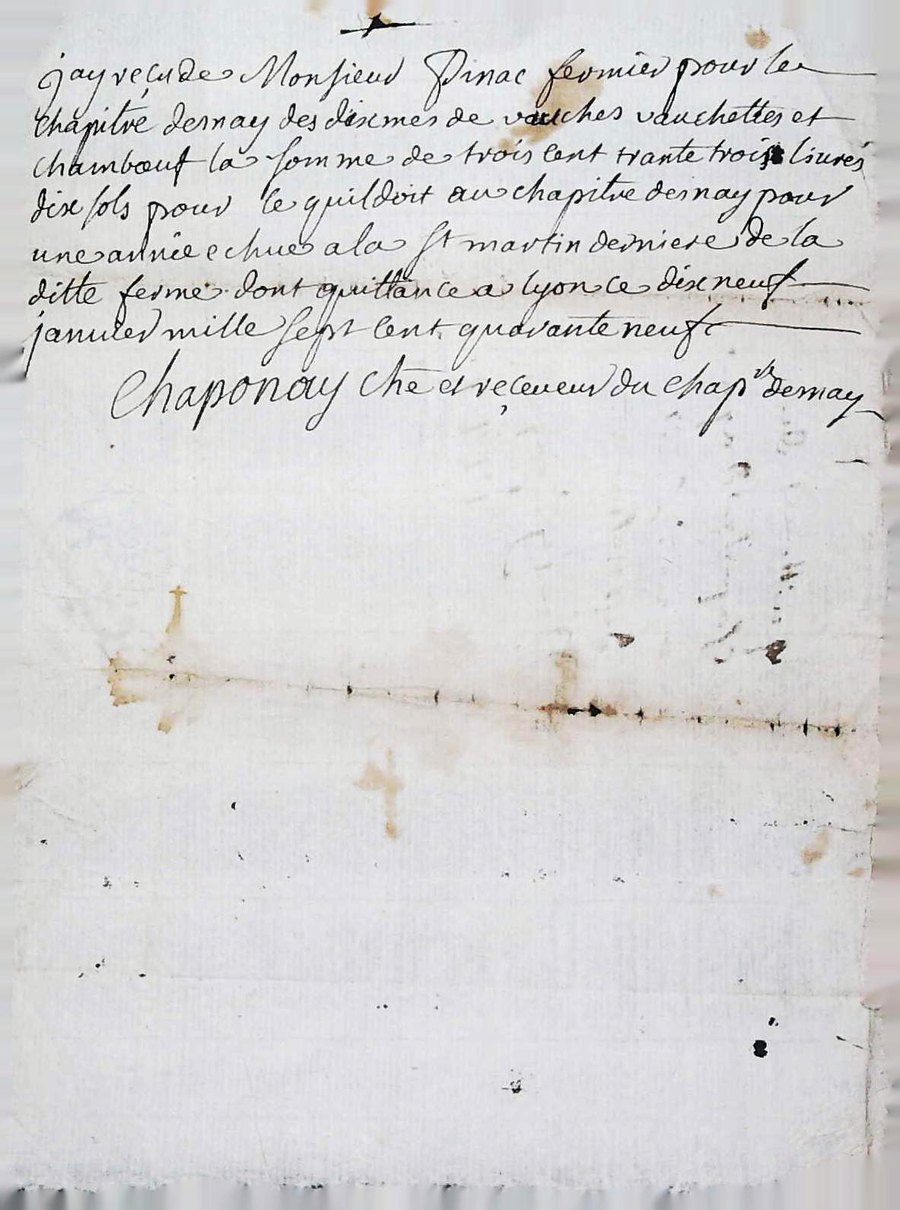 jay recu de Monsieur Pinac fermier pour le
chapitre desnay des dixmes de vauches vauchettes et
chambœuf la somme de trois cent trante trois livres
dix sols pour le quil doit au chapitre desnay pour
une année echue a la St martin derniere de la
ditte ferme dont quittance a lyon ce dix neuf
janvier mille sept cent quarante neuf
Chaponay che et receveur du chap^re desnay